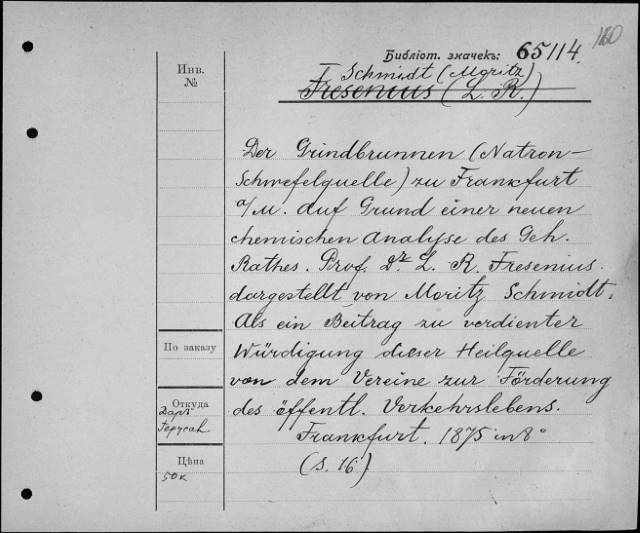 160
Библіот. значекъ: 65/114.
Schmidt (Moritz)
Fresenius (L. R.)
Инв.
№
Der Grindbrunnen (Natron-
Schwefelquelle) zu Frankfurt
a/M. auf Grund einer neuen
chemischen Analyse des Geh.
Rathes. Prof. Dr. L. R. Fresenius.
dargestellt von Moritz Schmidt.
Als ein Beitrag zu verdienter
Würdigung dieser Heilquelle
von dem Vereine zur Förderung
des öffentl. Verkehrslebens.
Frankfurt. 1875 in 8°
(S. 16)
По заказу
Откуда
Даръ
Цѣна
50к